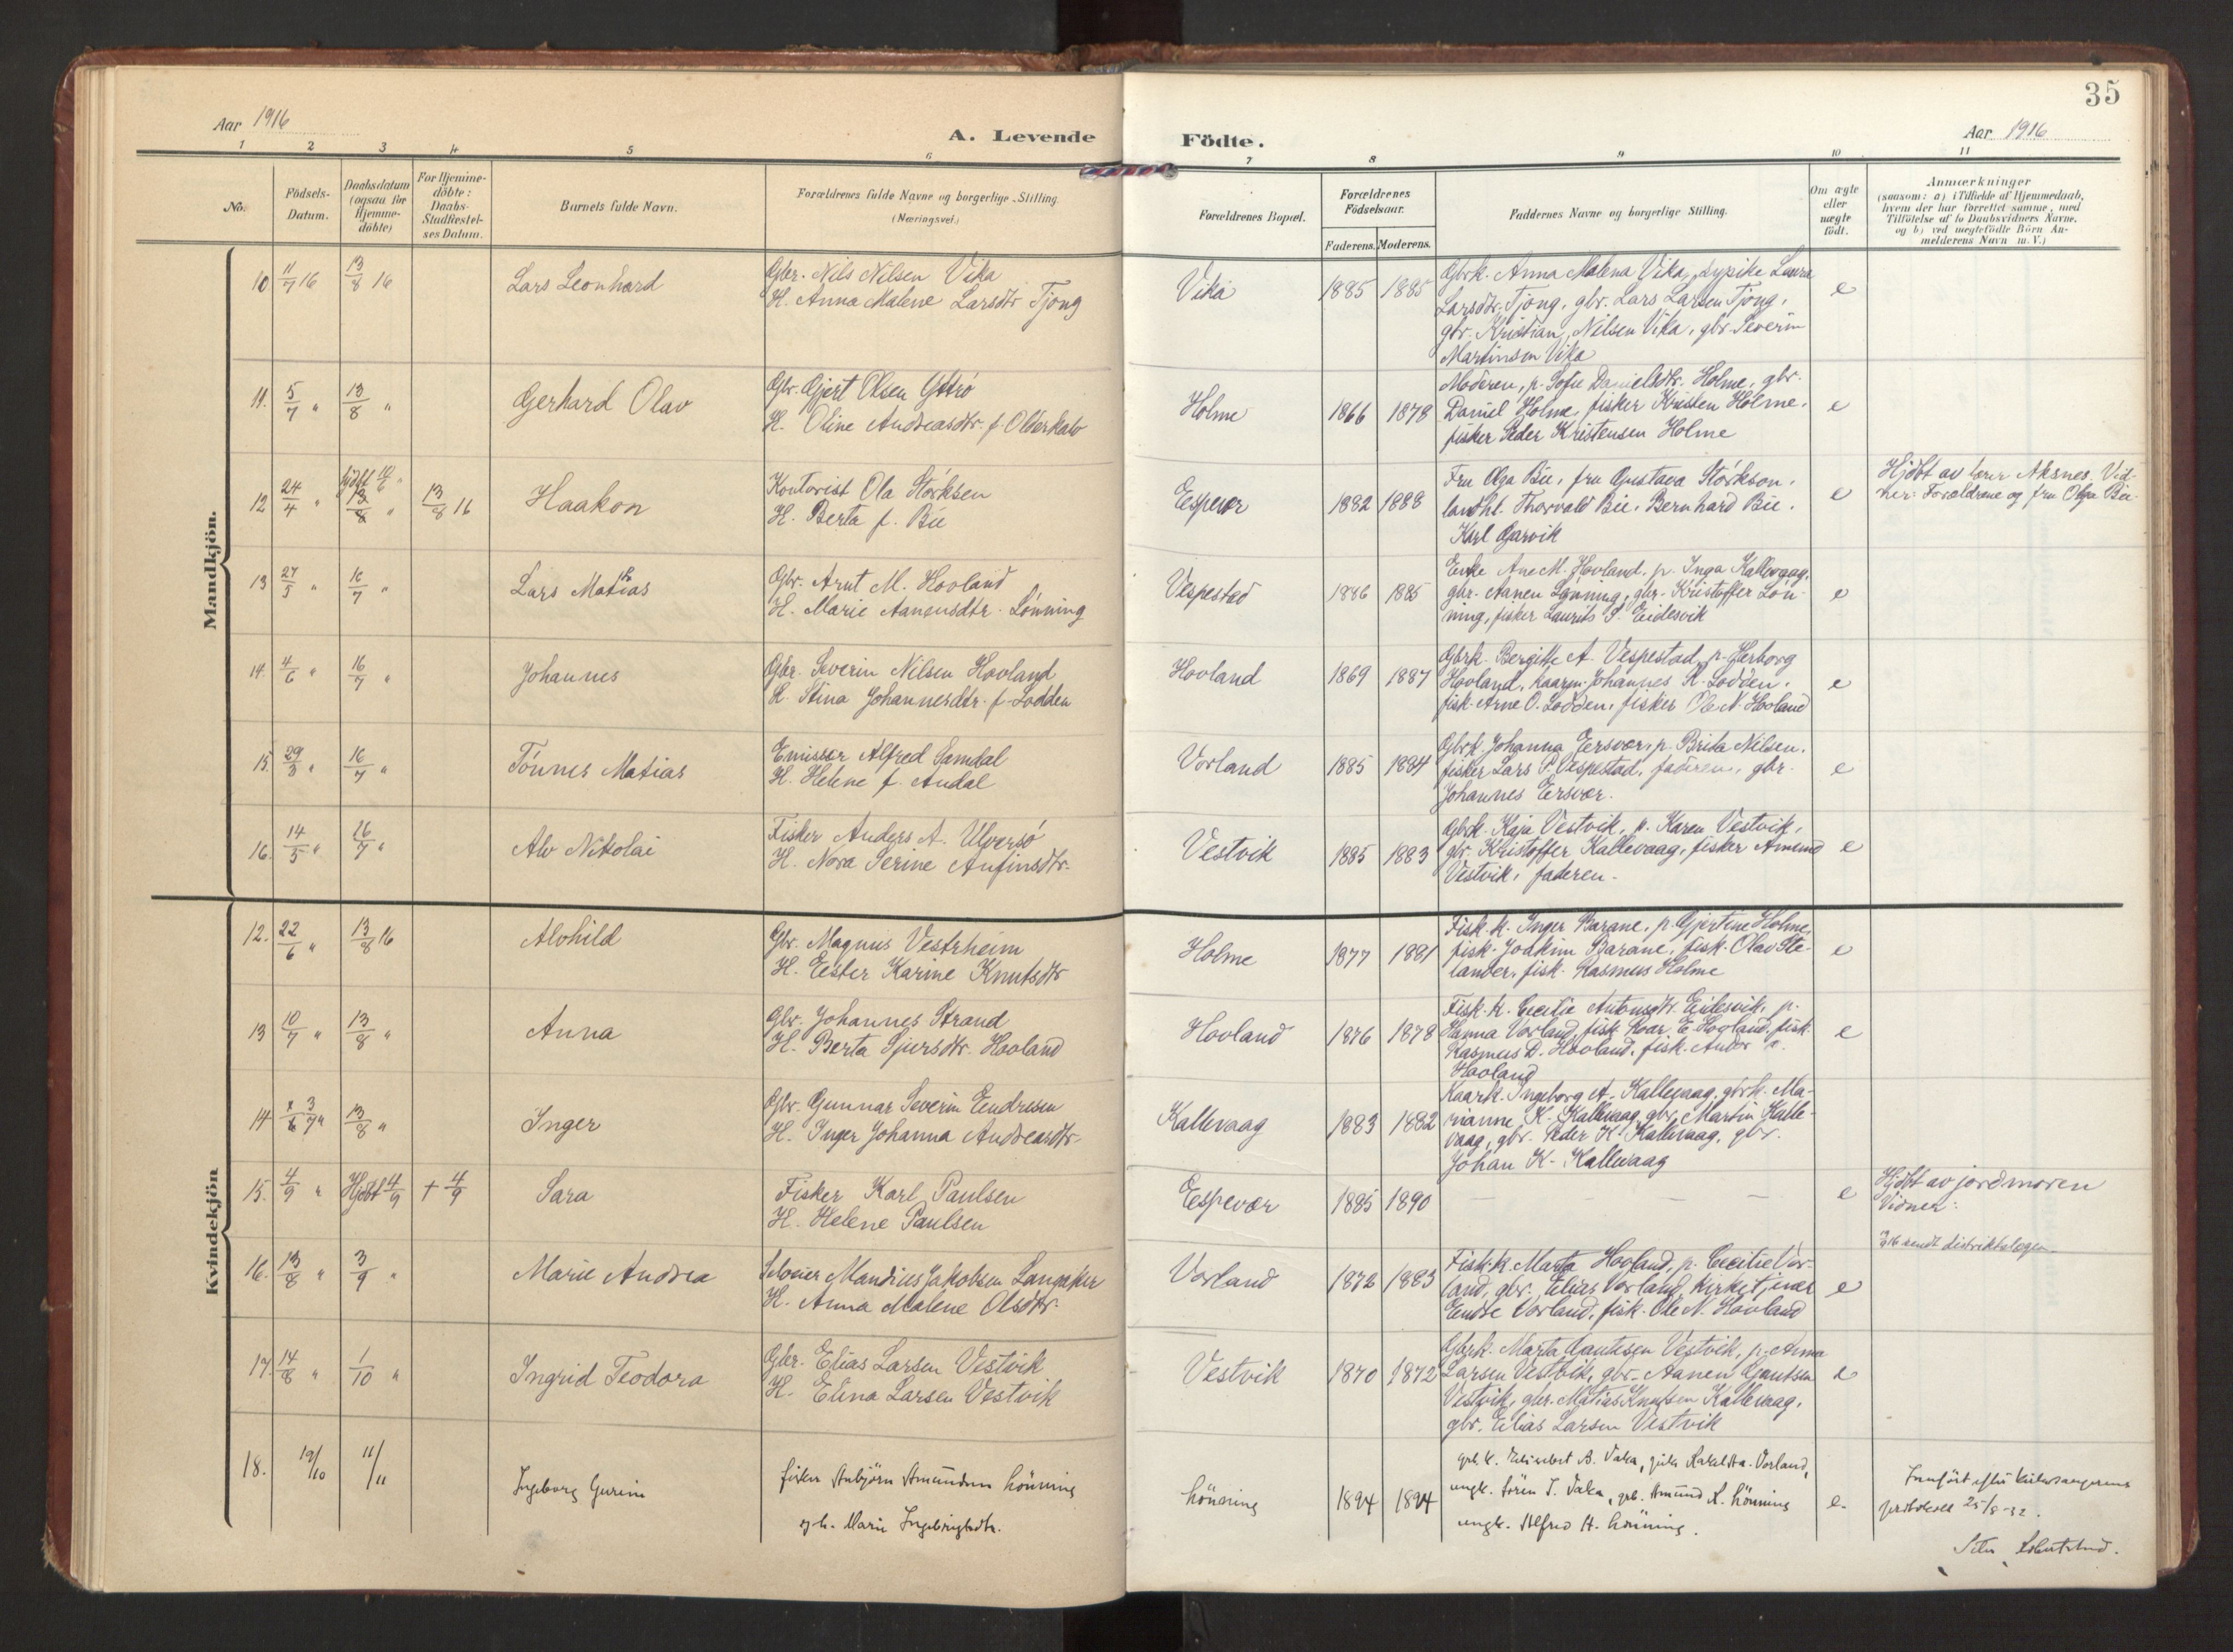 35
Aar 1916
A. Levende Födte.
Aar 1916
1 2 3 4 5 6 7 8 9 10 11
No.
Födsels-Datum.
Daabsdatum (ogsaa for Hjemme-döbte)
For Hjemme-döbte: Daabs-Stadfæstel-ses Datum.
Barnets fulde Navn.
Forældrenes fulde Navne og borgerlige Stilling.
(Næringsvei.)
Forældrenes Bopæl.
Forældrenes Födselsaar.
Faderens. Moderens.
Faddernes Navne og borgerlige Stilling.
Om ægte eller uægte födt.
Anmærkninger
(saasom: a) i Tilfælde af Hjemmedaab,
hvem der har forrettet samme, med
Tilföielse af to Daabsvidners Navne,
og b) ved uægtefödte Börn An-
melderens Navn m. V.)
Mandkjön.
10 11/7 16 13/8 16
Lars Leonhard
Gbr. Nils Nilsen Vika
H. Anna Malene Larsdtr Tjong
Vika 1885 1885
Gbrk. Anna Malena Vika, pypike Laura
Larsdtr. Tjong, gbr. Lars Larsen Tjong,
gbr. Kristian Nilsen Vika, gbr Severin
Martinsen Vika
e
11. 5/7 " 13/8 "
Gerhard Olav
Gbr. Gjert Olsen Yttrø
H. Oline Andreasdtr. f. Olderkalv
Holme 1866 1878
Moderen, p. Sofie Danielsdtr. Holme, gbr.
Daniel Holme, fisker Kristen Holme,
fisker Peder Kristensen Holme
e
12 24/4 " hjdbt 10/6 " 13/8 " 13/8 16
Haakon
Kontorist Ola Størksen
H. Berta f. Bie
Espevær 1882 1888
Fru Olga Bie, fru Gustava Størkson,
landhl. Thorvald Bie, Bernhard Bie,
Karl Garvik
e
Hjdbt av lærer Aksnes. Vid-
ner: Forældrene og fru Olga Bie
13 27/5 " 16/7 "
Lars Matias
Gbr. Arnt M. Hovland
H. Marie Aanensdtr. Lønning
Vespestad 1886 1885
Enke Ane M. Hovland, p. Inga Kallevaag,
gbr. Aanen Lønning, gbr. Kristoffer Løn-
ning, fisker Laurits S. Eidesvik
e
14. 4/6 " 16/7 "
Johannes
Gbr. Severin Nilsen Hovland
H. Stina Johannesdtr. f. Lodden
Hovland 1869 1887
Gbrk. Bergitte A. Vespestad, p. Herborg
Hovland, kaarm. Johannes K. Lodden,
fisk. Arne O. Lodden, fisker Ole N. Hovland
e
15. 29/3 " 16/7 "
Tønnes Matias
Emissær Alfred Samdal
H. Helene f. Audal
Vorland 1885 1884
Gbrk. Johanna Eersvær, p. Brita Nilsen,
fisker Lars P. Vespestad, faderen, gbr.
Johannes Eersvær.
e
16. 14/5 " 26/7 "
Alv Nikolai
Fisker Anders A. Ulversø
H. Nora Serine Anfinsdtr.
Vestvik 1885 1883
Gbrk. Kaja Vestvik, p. Karen Vestvik,
gbr. Kristoffer Kallevaag, fisker Amund
Vestvik, faderen.
e
Kvindekjön
12. 22/6 " 13/8 16
Alvhild
Gbr. Magnus Vestrheim
H. Eester Karine Knutsdtr
Holme 1877 1881
Fisk. k. Inger Barane, p. Gjertine Holme,
fisk. Joakim Barane, fisk. Olav Ste-
lander, fisk. Rasmus Holme
e
13 10/7 " 13/8 "
Anna
Gbr. Johannes Strand
H. Berta Sjursdtr. Hovland
Hovland 1876 1878
Fisk. k. Cecilie Antonsdtr. Eidesvik, p.
Hanna Vorland, fisk. Roar E. Hogland, fisk.
Rasmus D. Hovland, fisk.
Hovland
e
14. 3/7 " 13/8 "
Inger
Gbr. Gunnar Severin Eendresen
H. Inger Johanna Andreasdtr.
Kallevaag 1883 1882
Kaark. Ingeborg A. Kallevaag, gbrk. Ma-
rianne K. Kallevaag, gbr. Martin Kalle-
vaag, gbr. Peder K. Kallevaag, gbr.
Johan K. Kallevaag
15. 4/9 " Hjdbt 4/9 + 4/9
Sara
Fisker Karl Paulsen
H. Helene Paulsen
Eespevær 1885 1890
— — — —
e
Hjdbt av jordmoren
Vidner:
sendt distriktslægen
16. 13/8 " 3/9 "
Marie Andrea
Mandius Jakobsen Langaker
H. Anna Malene Olsdtr.
Vorland 1872 1883
Fisk.k. Marta Hovland, p. Cecilie Vor-
land, gbr. Elias Vorland, kirketjener
Eendre Vorland, fisk. Ole N. Hovland
e
17. 14/8 " 1/10 "
Ingrid Teodora
Gbr. Elias Larsen Vestvik
H. Elina Larsen Vestvik
Vestvik 1870 1872
Gbrk. Marta Gautesen Vestvik, p. Anna
Larsen Vestvik, gbr. Aanen Gautsen
Vestvik, gbr. Matias Knutsen Kallevaag,
gbr. Elias Larsen Vestvik
e
18. 19/10 11/11
Ingeborg Gurine
fisker Anbjörn Amundsen Lönning
og h. Marie Ingebrigtsdtr.
Lönning 1894 1894
gbr.k. Elisabet A. Vaka, pike Rakel Vorland,
ungk. Sören T. Vaka, grb. Amund A. Lönning
ungk. Alfred H. Lönning.
e.
Innfört efter klokkerens
protokoll 25/8-32.